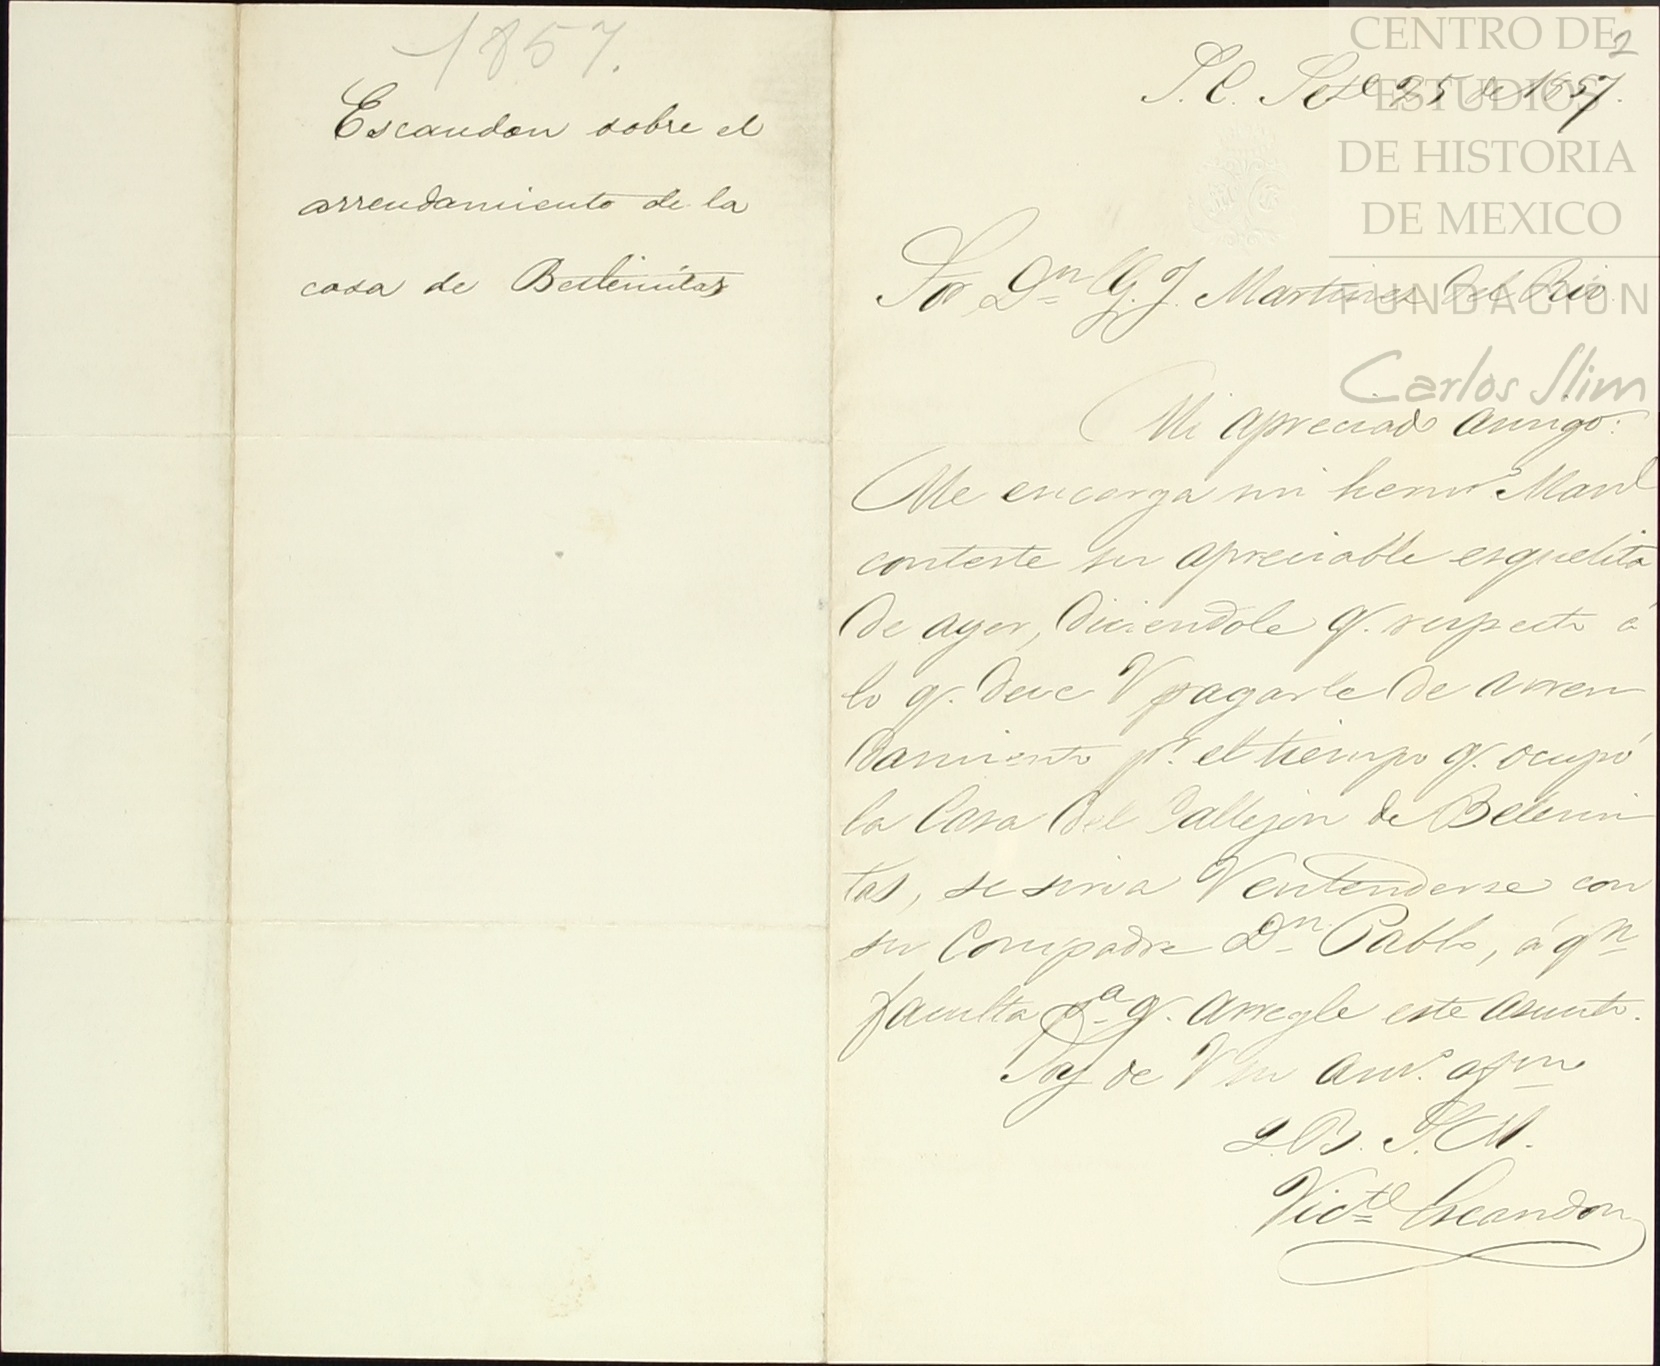 1857.
Escandon sobre el
arrendamiento de la
casa de Betlemitas
2
S. C. Sete 25 de 1857.
Sor Dn G. J. Martinez del Rio
Mi apreciado amigo:
Me encarga mi hermo Manl
conteste su apreciable esquelita
de ayer, diciendole q. respecto á
lo q. deve V pagarle de arren
damiento pr. el tiempo q. ocupó
la Casa del Callejón de Belemi
tas, se sirva V entenderse con
su Compadre Dn Pablo, á qn
faculta pa q. arregle este asunto.
Soy de V su amo. afmo
Q. B. S. M.
Victe Escandon
CENTRO DE
ESTUDIOS
DE HISTORIA
DE MEXICO
FUNDACIÓN
Carlos Slim